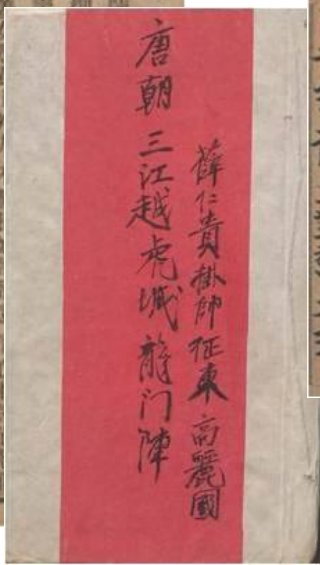 薛仁貴掛帥征東 高麗國
唐朝 三江越虎城 龍门陣